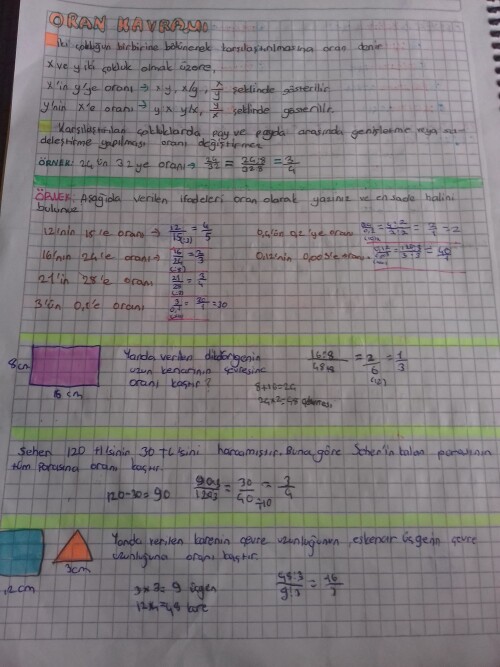 ORAN KAVRAMI
İki çokluğun birbirine bölünerek karşılaştırılmasına oran denir
x ve y iki çokluk olmak üzere,
x'in y'ye oranı → x y, x/y, x/y şeklinde gösterilir.
y'nin x'e oranı → y x y/x, y/x şeklinde gösterilir.
Karşılaştırılan çokluklarda pay ve payda arasında genişletme veya sa
deleştirme yapılması oranı değiştirmez
ÖRNEK: 24'ün 32'ye oranı → 24/32 = 24:8/32:8 = 3/4
ÖRNEK: Aşağıda verilen ifadeleri oran olarak yazınız ve en sade halini
bulunuz
12'nin 15'e oranı → 12/15 (:3) = 4/5
0,4'ün 0,2'ye oranı = 2
16'nın 24'e oranı → 16/24 (:8) = 2/3
0,12'nin 0,003'e oranı = 40
21'in 28'e oranı 21/28 (:7) = 3/4
3'ün 0,1'e oranı 3/0,1 = 30/1 = 30
8cm
Yanda verilen dikdörtgenin
uzun kenarının çevresine
oranı kaçtır?
16:8/48:8 = 2/6 (:2) = 1/3
8+16=24
24x2=48 çevresi
16 cm
Sehen 120 tl'sinin 30 tl'sini harcamıştır. Buna göre Sehen'in kalan parasının
tüm parasına oranı kaçtır.
120-30=90
90:3/120:3 = 30/40 :10 = 3/4
Yanda verilen karenin çevre uzunluğunun, eşkenar üçgenin çevre
uzunluğuna oranı kaçtır.
3cm
3x3=9 üçgen
12x4=48 kare
48:3/9:3 = 16/3